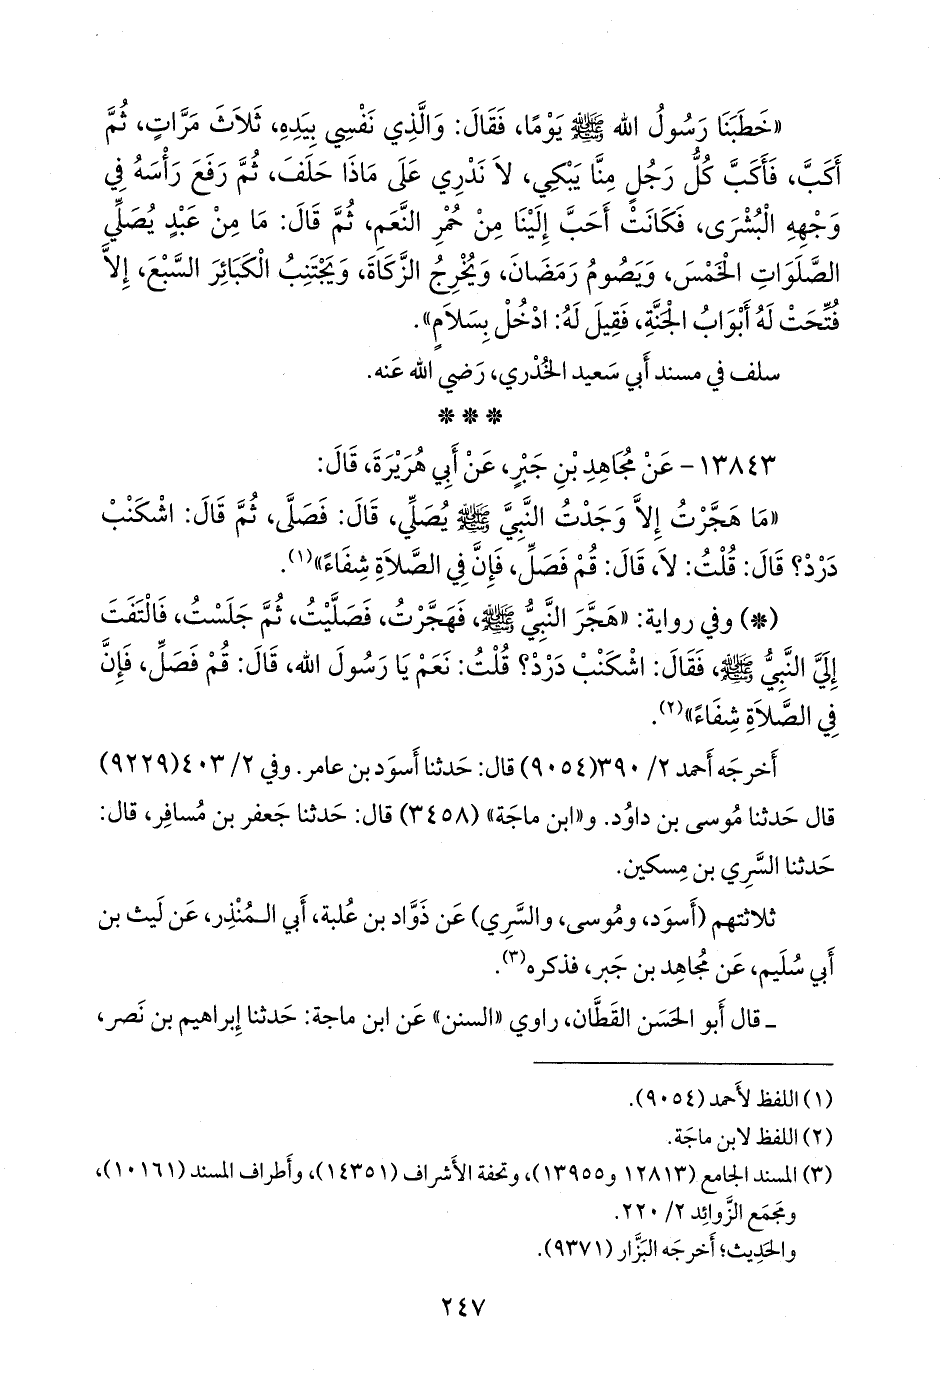 «خَطَبَنَا رَسُولُ الله ﷺ يَوْمًا، فَقَالَ: وَالَّذِي نَفْسِي بِيَدِهِ، ثَلاَثَ مَرَّاتٍ، ثُمَّ
أَكَبَّ، فَأَكَبَّ كُلُّ رَجُلٍ مِنَّا يَبْكِي، لاَ نَدْرِي عَلَى مَاذَا حَلَفَ، ثُمَّ رَفَعَ رَأْسَهُ فِي
وَجْهِهِ الْبُشْرَى، فَكَانَتْ أَحَبَّ إِلَيْنَا مِنْ حُمْرِ النَّعَمِ، ثُمَّ قَالَ: مَا مِنْ عَبْدٍ يُصَلِّي
الصَّلَوَاتِ الْخَمْسَ، وَيَصُومُ رَمَضَانَ، وَيُخْرِجُ الزَّكَاةَ، وَيَجْتَنِبُ الْكَبَائِرَ السَّبْعَ، إِلاَّ
فُتِّحَتْ لَهُ أَبْوَابُ الْجَنَّةِ، فَقِيلَ لَهُ: ادْخُلْ بِسَلاَمٍ».
سلف في مسند أَبي سَعيد الخُدْري، رَضي الله عَنه.
* * *
١٣٨٤٣ - عَنْ مُجَاهِدِ بْنِ جَبْرٍ، عَنْ أَبِي هُرَيْرَةَ، قَالَ:
«مَا هَجَّرْتُ إِلاَّ وَجَدْتُ النَّبِيَّ ﷺ يُصَلِّي، قَالَ: فَصَلَّى، ثُمَّ قَالَ: اشْكَنْبْ
دَرْدْ؟ قَالَ: قُلْتُ: لاَ، قَالَ: قُمْ فَصَلِّ، فَإِنَّ فِي الصَّلاَةِ شِفَاءً»(١).
(*) وفي رواية: «هَجَّرَ النَّبِيُّ ﷺ، فَهَجَّرْتُ، فَصَلَّيْتُ، ثُمَّ جَلَسْتُ، فَالْتَفَتَ
إِلَيَّ النَّبِيُّ ﷺ، فَقَالَ: اشْكَنْبْ دَرْدْ؟ قُلْتُ: نَعَمْ يَا رَسُولَ الله، قَالَ: قُمْ فَصَلِّ، فَإِنَّ
فِي الصَّلاَةِ شِفَاءً»(٢).
أَخرجَه أَحمد ٢/ ٣٩٠(٩٠٥٤) قال: حَدثنا أَسوَد بن عامر. وفي ٢/ ٤٠٣(٩٢٢٩)
قال حَدثنا مُوسى بن داوُد. و«ابن ماجَة» (٣٤٥٨) قال: حَدثنا جَعفر بن مُسافِر، قال:
حَدثنا السَّرِي بن مِسكين.
ثلاثتهم (أَسوَد، ومُوسى، والسَّرِي) عَن ذَوَّاد بن عُلبة، أَبي الـمُنْذِر، عَن لَيث بن
أَبي سُلَيم، عَن مُجاهِد بن جَبر، فذكره(٣).
ـ قال أَبو الحَسَن القَطَّان، راوي «السنن» عَن ابن ماجة: حَدثنا إِبراهيم بن نَصر،
(١) اللفظ لأَحمد (٩٠٥٤).
(٢) اللفظ لابن ماجَة.
(٣) المسند الجامع (١٢٨١٣ و١٣٩٥٥)، وتحفة الأَشراف (١٤٣٥١)، وأَطراف المسند (١٠١٦١)،
ومَجمَع الزَّوائِد ٢/ ٢٢٠.
والحَدِيث؛ أَخرجَه البَزَّار (٩٣٧١).
٢٤٧